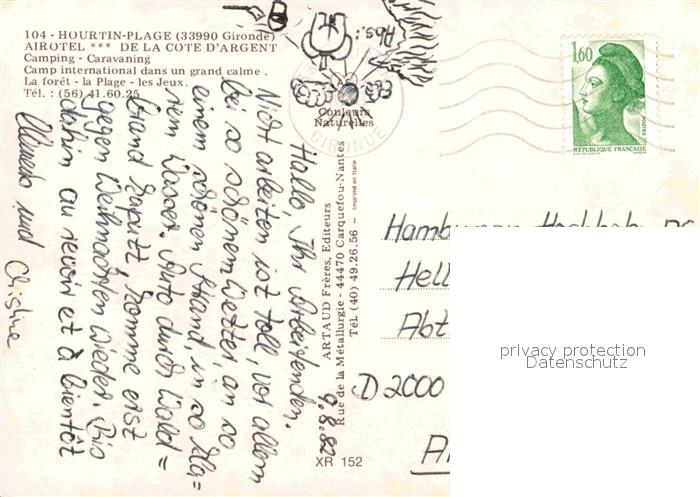 104 - HOURTIN-PLAGE (33990 Gironde)
AIROTEL *** DE LA COTE D'ARGENT
Camping - Caravaning
Camp international dans un grand calme .
La forêt - la Plage - les Jeux.
Tél. : (56) 41.60.25
Abs.:
Couleurs
Naturelles
GIRONDE
1,60
POSTES
RÉPUBLIQUE FRANÇAISE
Hallo, Ihr Arbeitenden.
Nicht arbeiten ist toll, vor allem
bei so schönem Wetter, an so
einem schönen Strand, in so kla=
rem Wasser. Auto durch Wald=
brand kaputt, komme erst
gegen Weihnachten wieder. Bis
dahin au revoir et à bientôt
und Christine
9.8.82
ARTAUD Frères, Editeurs
Rue de la Métallurgie - 44470 Carquefou-Nantes
Tél. (40) 49.26.56 - Imprimé en Italie
XR 152
Hamburger Hochbahn
Hell
Abt
D 2000
privacy protection
Datenschutz